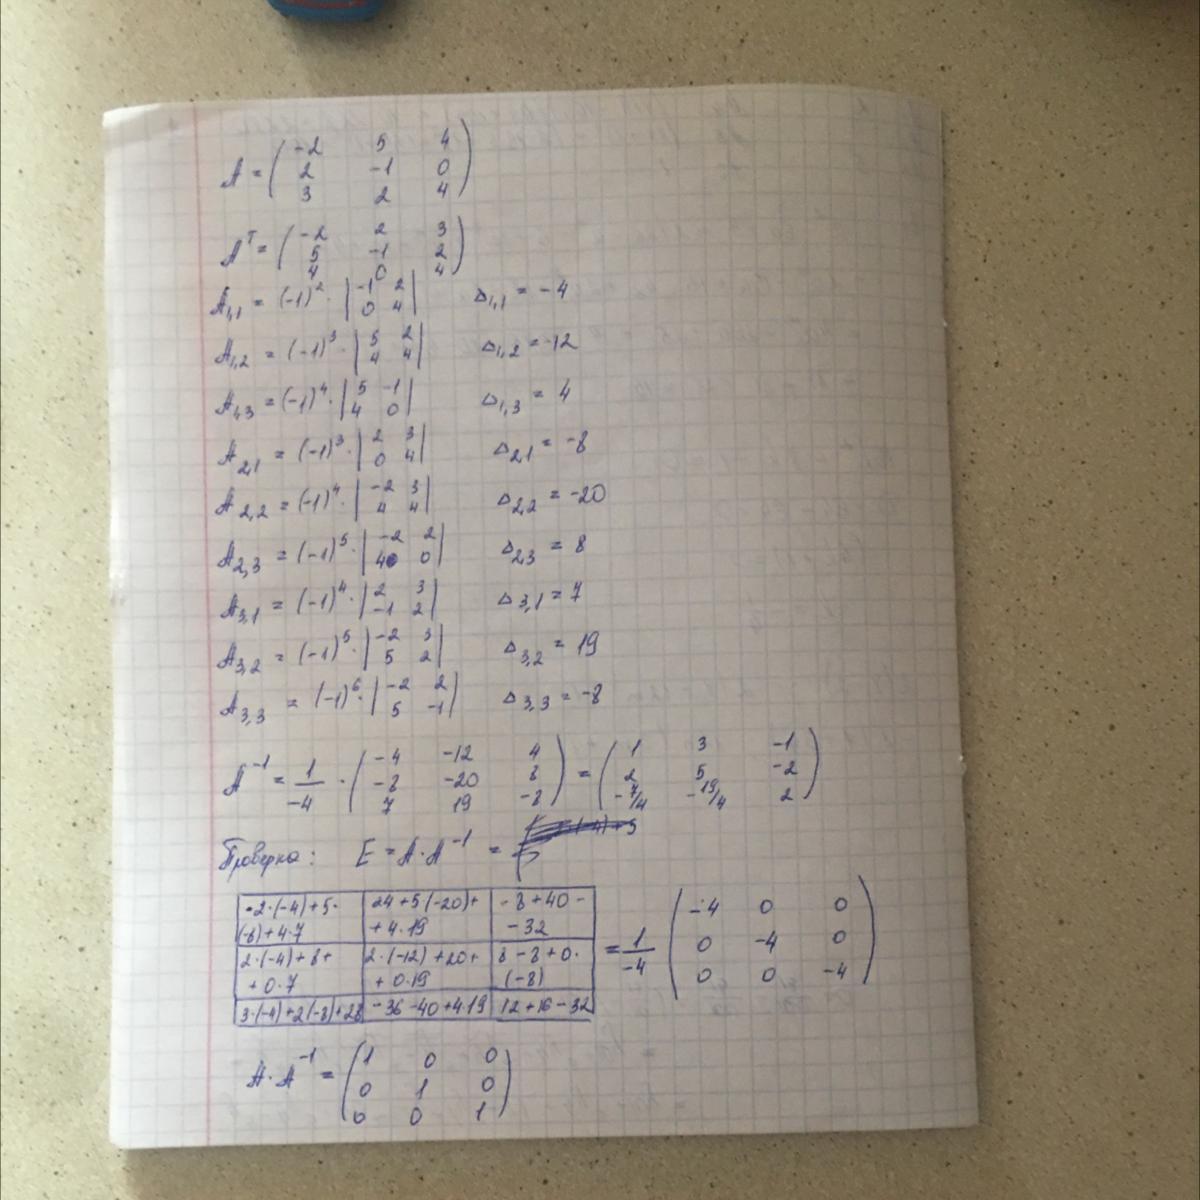 A = ( -2 5 4
2 -1 0
3 2 4 )
Aᵀ = ( -2 2 3
5 -1 2
4 0 4 )
A1,1 = (-1)² · | -1 2
0 4 | Δ1,1 = -4
A1,2 = (-1)³ · | 5 2
4 4 | Δ1,2 = -12
A1,3 = (-1)⁴ · | 5 -1
4 0 | Δ1,3 = 4
A2,1 = (-1)³ · | 2 3
0 4 | Δ2,1 = -8
A2,2 = (-1)⁴ · | -2 3
4 4 | Δ2,2 = -20
A2,3 = (-1)⁵ · | -2 2
4 0 | Δ2,3 = 8
A3,1 = (-1)⁴ · | 2 3
-1 2 | Δ3,1 = 7
A3,2 = (-1)⁵ · | -2 3
5 2 | Δ3,2 = 19
A3,3 = (-1)⁶ · | -2 2
5 -1 | Δ3,3 = -8
A⁻¹ = 1/-4 · ( -4 -12 4
-8 -20 8
7 19 -8 ) = ( 1 3 -1
2 5 -2
-7/4 -19/4 2 )
Проверка: E = A · A⁻¹ =
-2·(-4)+5· 24+5(-20)+ -8+40-
(-8)+4·7 +4·19 -32
2·(-4)+8+ 2·(-12)+20+ 8-8+0·
+0·7 +0·19 (-8)
3·(-4)+2(-8)+28 -36-40+4·19 12+16-32
= 1/-4 ( -4 0 0
0 -4 0
0 0 -4 )
A · A⁻¹ = ( 1 0 0
0 1 0
0 0 1 )